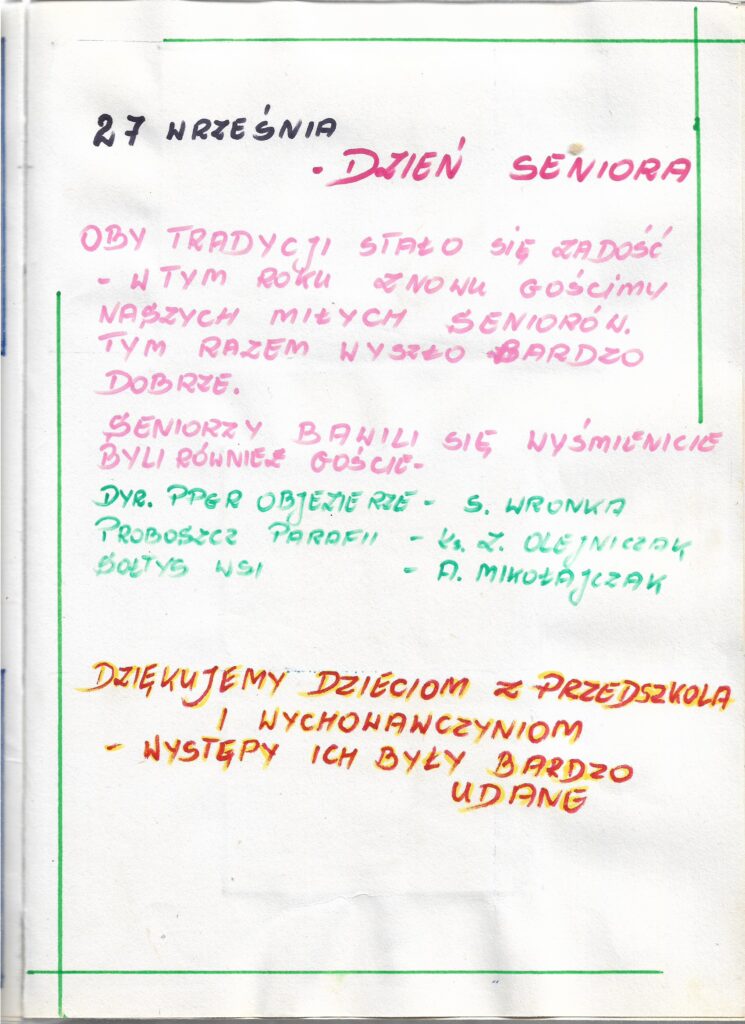 27 WRZEŚNIA
- DZIEŃ SENIORA
OBY TRADYCJI STAŁO SIĘ ZADOŚĆ
- W TYM ROKU ZNOWU GOŚCIMY
NASZYCH MIŁYCH SENIORÓW.
TYM RAZEM WYSZŁO BARDZO
DOBRZE.
SENIORZY BAWILI SIĘ WYŚMIENICIE
BYLI RÓWNIEŻ GOŚCIE-
DYR. PPGR OBJEZIERZE - S. WRONKA
PROBOSZCZ PARAFII - KS. Z. OLEJNICZAK
SOŁTYS WSI - A. MIKOŁAJCZAK
DZIĘKUJEMY DZIECIOM Z PRZEDSZKOLA
I WYCHOWAWCZYNIOM
- WYSTĘPY ICH BYŁY BARDZO
UDANE